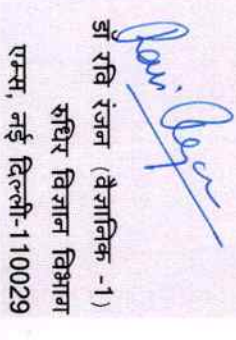 Ravi Ranjan
डॉ रवि रंजन (वैज्ञानिक -1)
रुधिर विज्ञान विभाग
एम्स, नई दिल्ली-110029